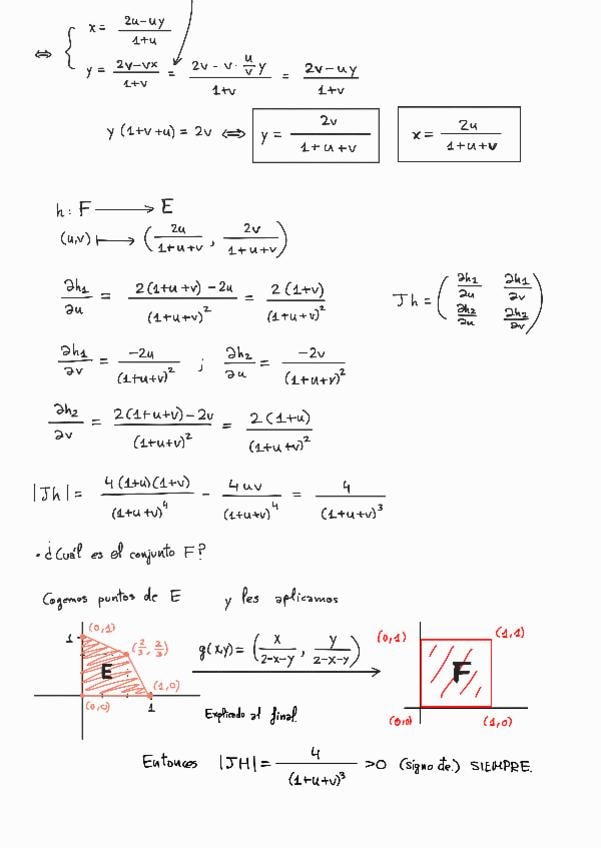 ⇔ { x = (2u-uy)/(1+u)
y = (2v-vx)/(1+v) = (2v - v · (u/v) y)/(1+v) = (2v-uy)/(1+v)
y (1+v+u) = 2v ⇔ y = 2v/(1+u+v) x = 2u/(1+u+v)
h: F ⟶ E
(u,v) ⟼ (2u/(1+u+v) , 2v/(1+u+v))
∂h1/∂u = (2(1+u+v) - 2u)/(1+u+v)^2 = 2(1+v)/(1+u+v)^2 Jh = (∂h1/∂u ∂h1/∂v ∂h2/∂u ∂h2/∂v)
∂h1/∂v = -2u/(1+u+v)^2 ; ∂h2/∂u = -2v/(1+u+v)^2
∂h2/∂v = (2(1+u+v)-2v)/(1+u+v)^2 = 2(1+u)/(1+u+v)^2
|Jh| = 4(1+u)(1+v)/(1+u+v)^4 - 4uv/(1+u+v)^4 = 4/(1+u+v)^3
• ¿Cuál es el conjunto F?
Cogemos puntos de E y les aplicamos
1 (0,1) (2/3, 2/3) E (1,0) (0,0) 1
g(x,y) = (x/(2-x-y) , y/(2-x-y))
Explicado al final
(0,1) (1,1) F (0,0) (1,0)
Entonces |JH| = 4/(1+u+v)^3 >0 (signo de.) SIEMPRE.